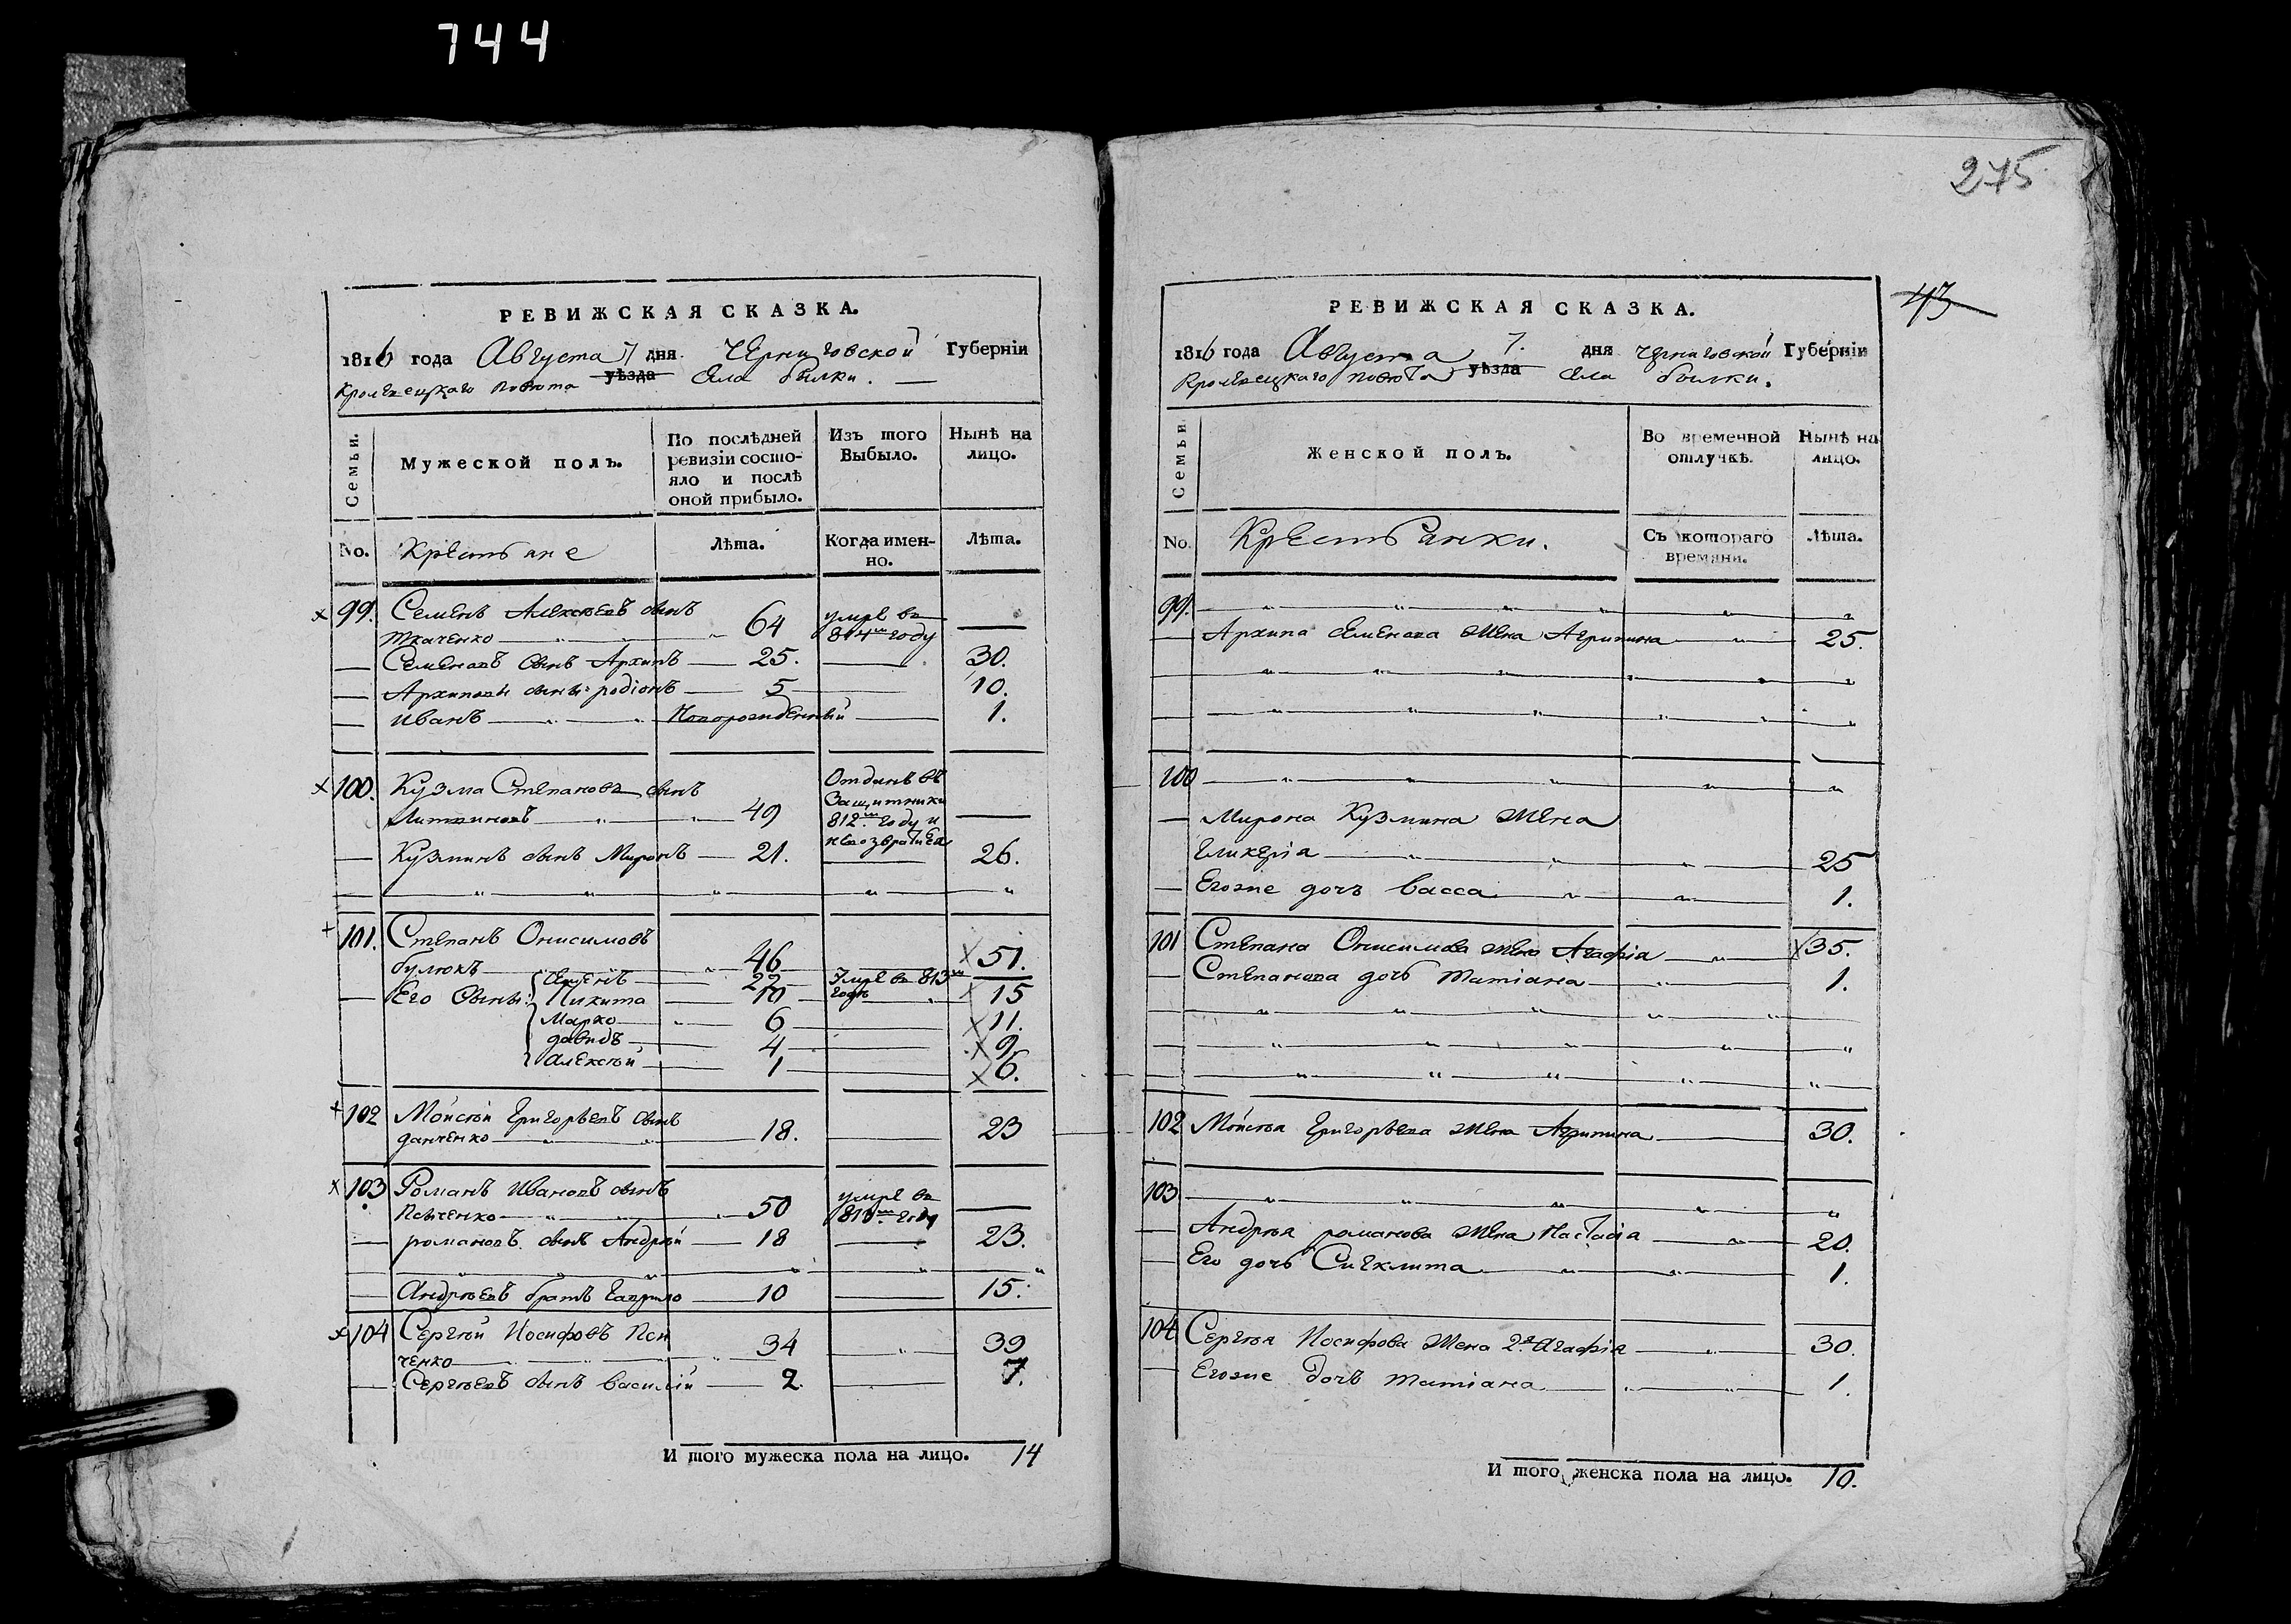 744
РЕВИЖСКАЯ СКАЗКА.
1816 года Августа 7 дня Черниговской Губерніи
Кролевецкаго повѣта уѣзда села Билки.
Семьи.
Мужеской полъ.
По послѣдней ревизіи состояло и послѣ оной прибыло.
Изъ того Выбыло.
Нынѣ на лицо.
No.
Крестьяне
Лѣта.
Когда именно.
Лѣта.
99. Семенъ Алексѣевъ сынъ
Ткаченко 64 умре въ 814м году
Семеновъ сынъ Архипъ 25. 30.
Архиповы сыны: родіонъ 5 10.
Иванъ Новорожденный 1.
100. Кузма Степановъ сынъ
Литвиновъ 49 Отданъ въ Защитники 812м году и
Кузминъ сынъ Миронъ 21. 26.
101. Степанъ Онисимовъ
булюкъ 46 51.
Семенъ 22 Умре въ 813м годѣ
Его Сыны: Никита 10 15
Марко 6 11.
давидъ 4 9
Алексѣй 1 6.
102 Мойсѣй Григорьевъ сынъ
данченко 18. 23
103 Романъ Ивановъ сынъ
50 умре въ году
романовъ сынъ Андрѣй 18 23.
Андрѣевъ братъ Гаврило 10 15.
104 Сергѣй Иосифовъ Пси
ченко 34 39
Сергѣевъ сынъ Василій 2 7.
И того мужеска пола на лицо. 14
275
43
РЕВИЖСКАЯ СКАЗКА.
1816 года Августа 7. дня Черниговской Губерніи
Кролевецкаго повѣта уѣзда села Билки.
Семьи.
Женской полъ.
Во временной отлучкѣ.
Нынѣ на лицо.
No.
Крестьянки.
Съ котораго времяни.
Лѣта.
99.
Архипа Семенова Жена Агрипина 25.
100
Мирона Кузмина Жена
Гликерія 25
Егоже дочь Васса 1.
101 Степана Онисимова жена Агафія 35.
Степанова дочь Татіана 1.
102 Мойсѣя Григорьева жена Агрипина 30.
103
Андрѣя романова Жена Настасіа 20.
Его дочь Синклита 1.
104 Сергѣя Иосифова Жена 2я Агафія 30.
Егоже Дочь Татіана 1.
И того женска пола на лицо. 10.